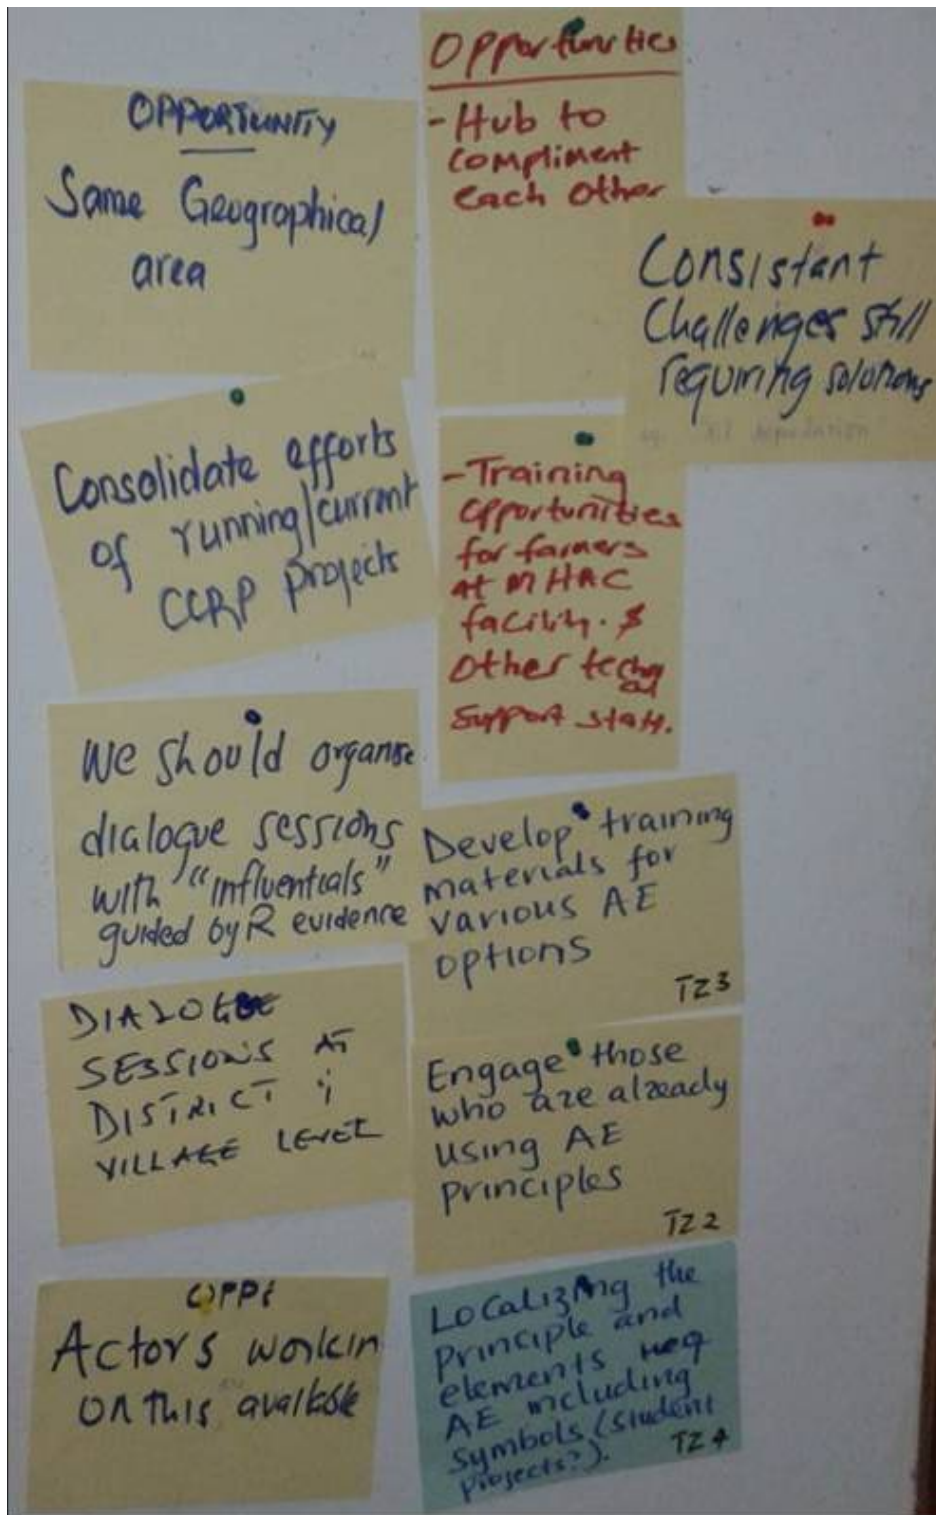 OPPORTUNITY
Same Geographical
area
Consolidate efforts
of running/current
CCRP projects
We should organise
dialogue sessions
with "influentials"
guided by R evidence
DIALOGUE
SESSIONS AT
DISTRICT &
VILLAGE LEVEL
OPPt
Actors workin
on this available
Opportunities
- Hub to
compliment
each other
- Training
opportunities
for farmers
at MHAC
facility. &
Other
Support staff.
Develop training
materials for
various AE
options
TZ3
Engage those
who are already
using AE
principles
TZ2
Localizing the
principle and
elements
AE including
symbols (student
projects?).
TZ4
Consistant
Challenges still
requiring solutions